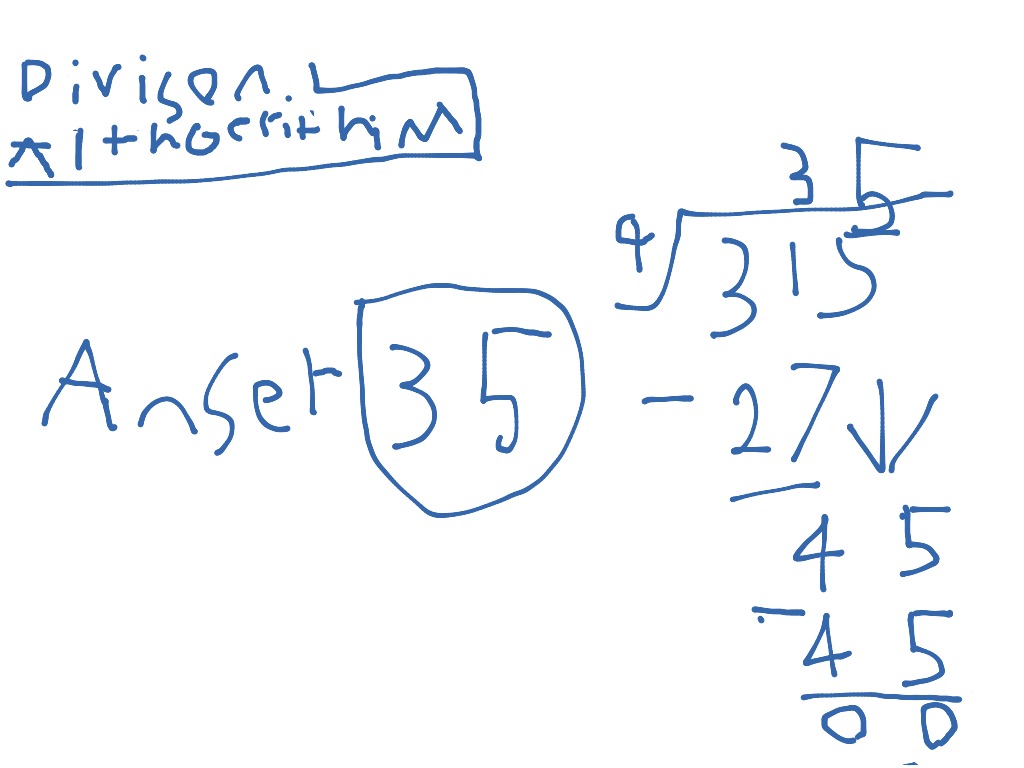 Divison
Althogrithm
35
9 315
Anser 35
- 27
45
- 45
00